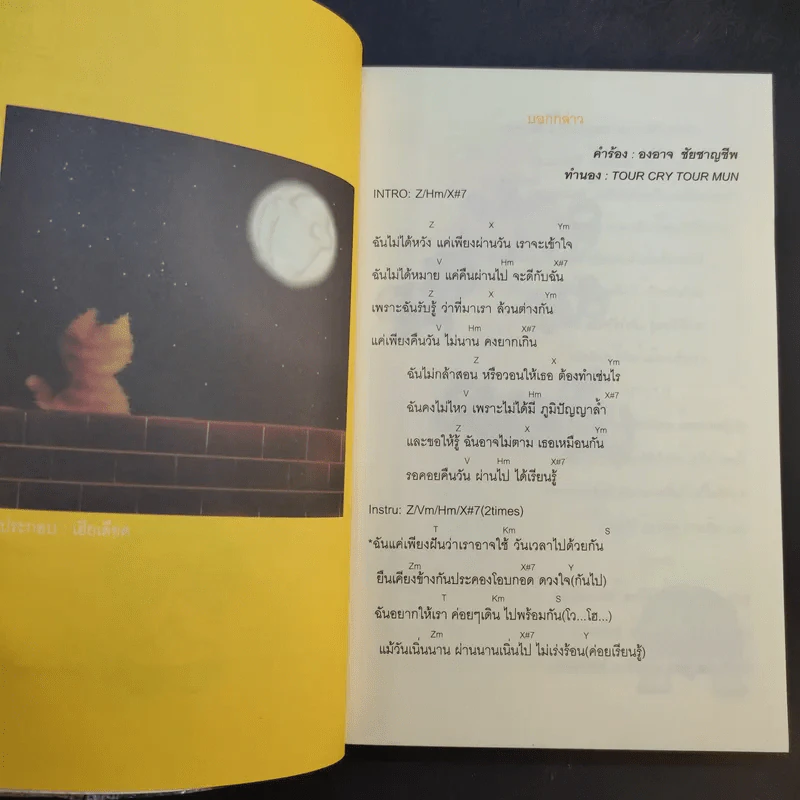 ประกอบ
บอกกล่าว
คำร้อง : องอาจ ชัยชาญชีพ
ทำนอง : TOUR CRY TOUR MUN
INTRO: Z/Hm/X#7
Z X Ym
ฉันไม่ได้หวัง แค่เพียงผ่านวัน เราจะเข้าใจ
V Hm X#7
ฉันไม่ได้หมาย แค่คืนผ่านไป จะดีกับฉัน
Z X Ym
เพราะฉันรับรู้ ว่าที่มาเรา ล้วนต่างกัน
V Hm X#7
แค่เพียงคืนวัน ไม่นาน คงยากเกิน
Z X Ym
ฉันไม่กล้าสอน หรือวอนให้เธอ ต้องทำเช่นไร
V Hm X#7
ฉันคงไม่ไหว เพราะไม่ได้มี ภูมิปัญญาล้ำ
Z X Ym
และขอให้รู้ ฉันอาจไม่ตาม เธอเหมือนกัน
V Hm X#7
รอคอยคืนวัน ผ่านไป ได้เรียนรู้
Instru: Z/Vm/Hm/X#7(2times)
T Km S
*ฉันแค่เพียงฝันว่าเราอาจใช้ วันเวลาไปด้วยกัน
Zm X#7 Y
ยืนเคียงข้างกันประคองโอบกอด ดวงใจ(กันไป)
T Km S
ฉันอยากให้เรา ค่อยๆเดิน ไปพร้อมกัน(โว...โฮ...)
Zm X#7 Y
แม้วันเนิ่นนาน ผ่านนานเนิ่นไป ไม่เร่งร้อน(ค่อยเรียนรู้)